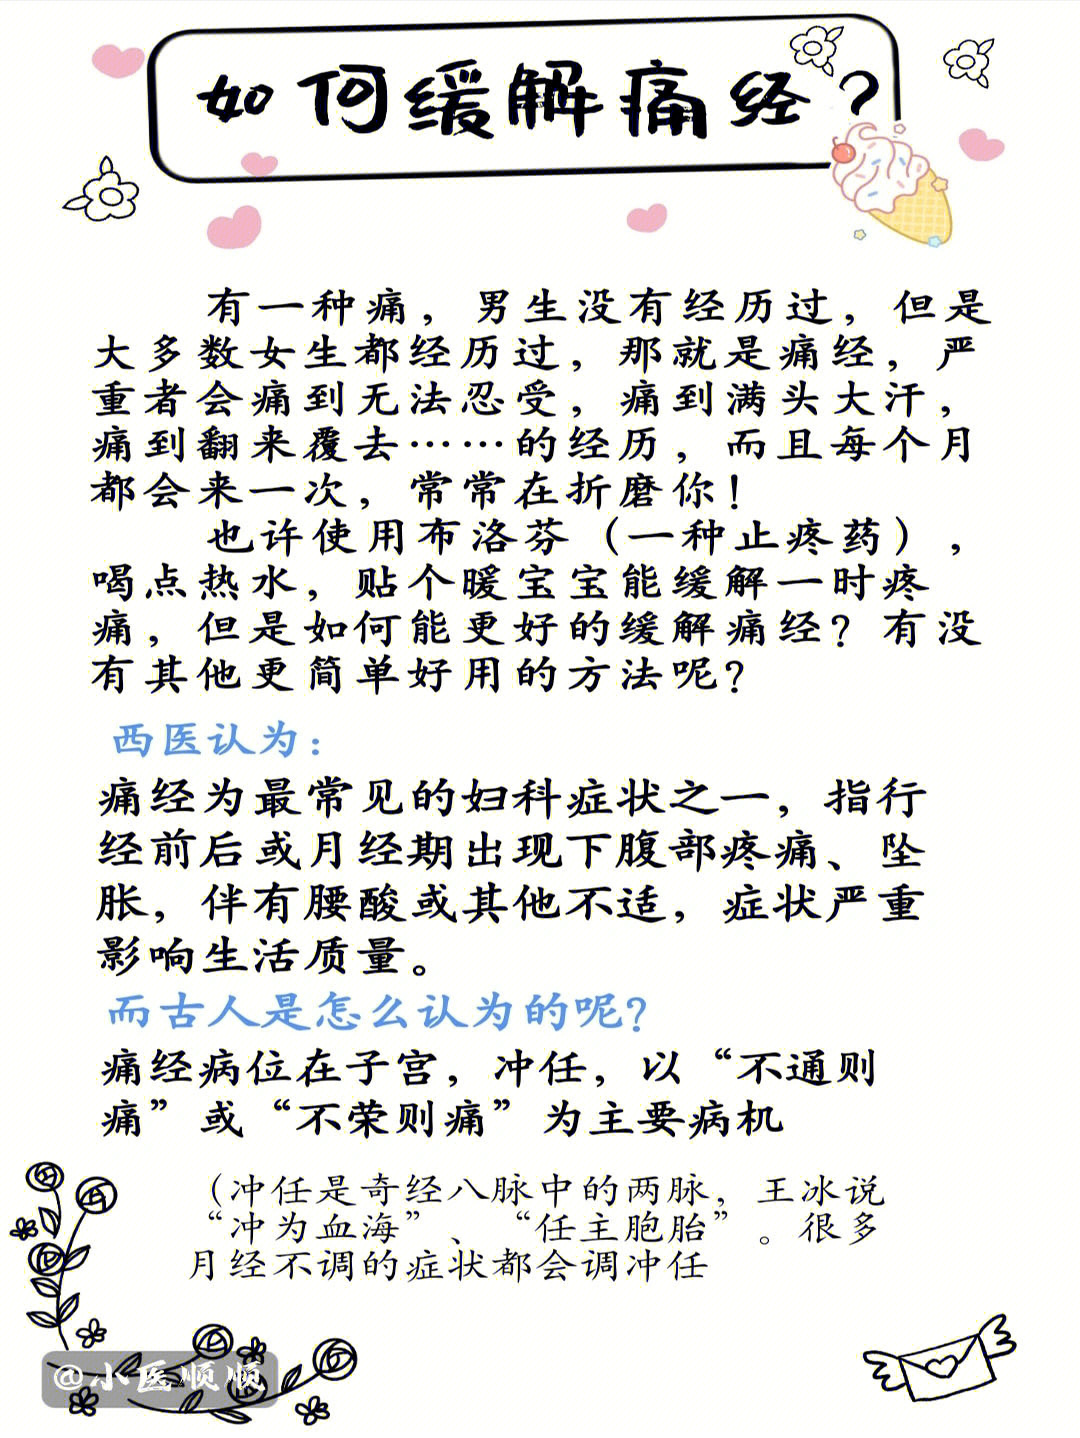 如何缓解痛经？
有一种痛，男生没有经历过，但是
大多数女生都经历过，那就是痛经，严
重者会痛到无法忍受，痛到满头大汗，
痛到翻来覆去……的经历，而且每个月
都会来一次，常常在折磨你！
也许使用布洛芬（一种止疼药），
喝点热水，贴个暖宝宝能缓解一时疼
痛，但是如何能更好的缓解痛经？有没
有其他更简单好用的方法呢？
西医认为：
痛经为最常见的妇科症状之一，指行
经前后或月经期出现下腹部疼痛、坠
胀，伴有腰酸或其他不适，症状严重
影响生活质量。
而古人是怎么认为的呢？
痛经病位在子宫，冲任，以“不通则
痛”或“不荣则痛”为主要病机
（冲任是奇经八脉中的两脉，王冰说
“冲为血海”、“任主胞胎”。很多
月经不调的症状都会调冲任
@小医顺顺